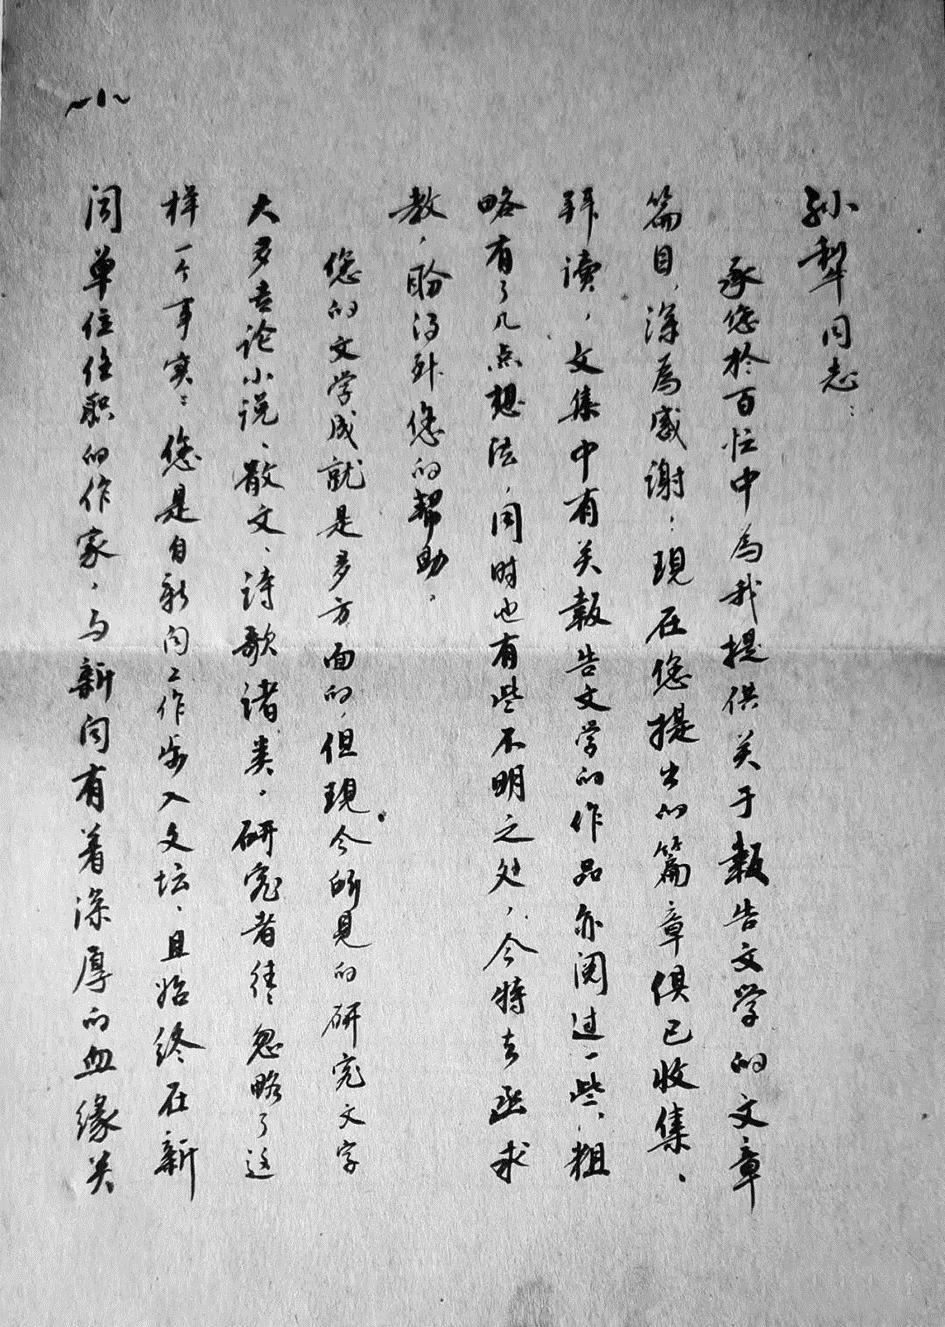 孙犁同志：
承您於百忙中為我提供关于報告文学的文章
篇目，深為感谢；現在您提出的篇章俱已收集、
拜讀，文集中有关報告文学的作品亦阅过一些，粗
略有了几点想法，同时也有些不明之处，今特去函求
教，盼得到您的帮助。
您的文学成就是多方面的，但現今所見的研究文字
大多专论小说、散文、诗歌诸类，研究者往往忽略了这
样一个事实：您是自新闻工作步入文坛，且始终在新
闻单位任职的作家，与新闻有着深厚的血缘关
～1～